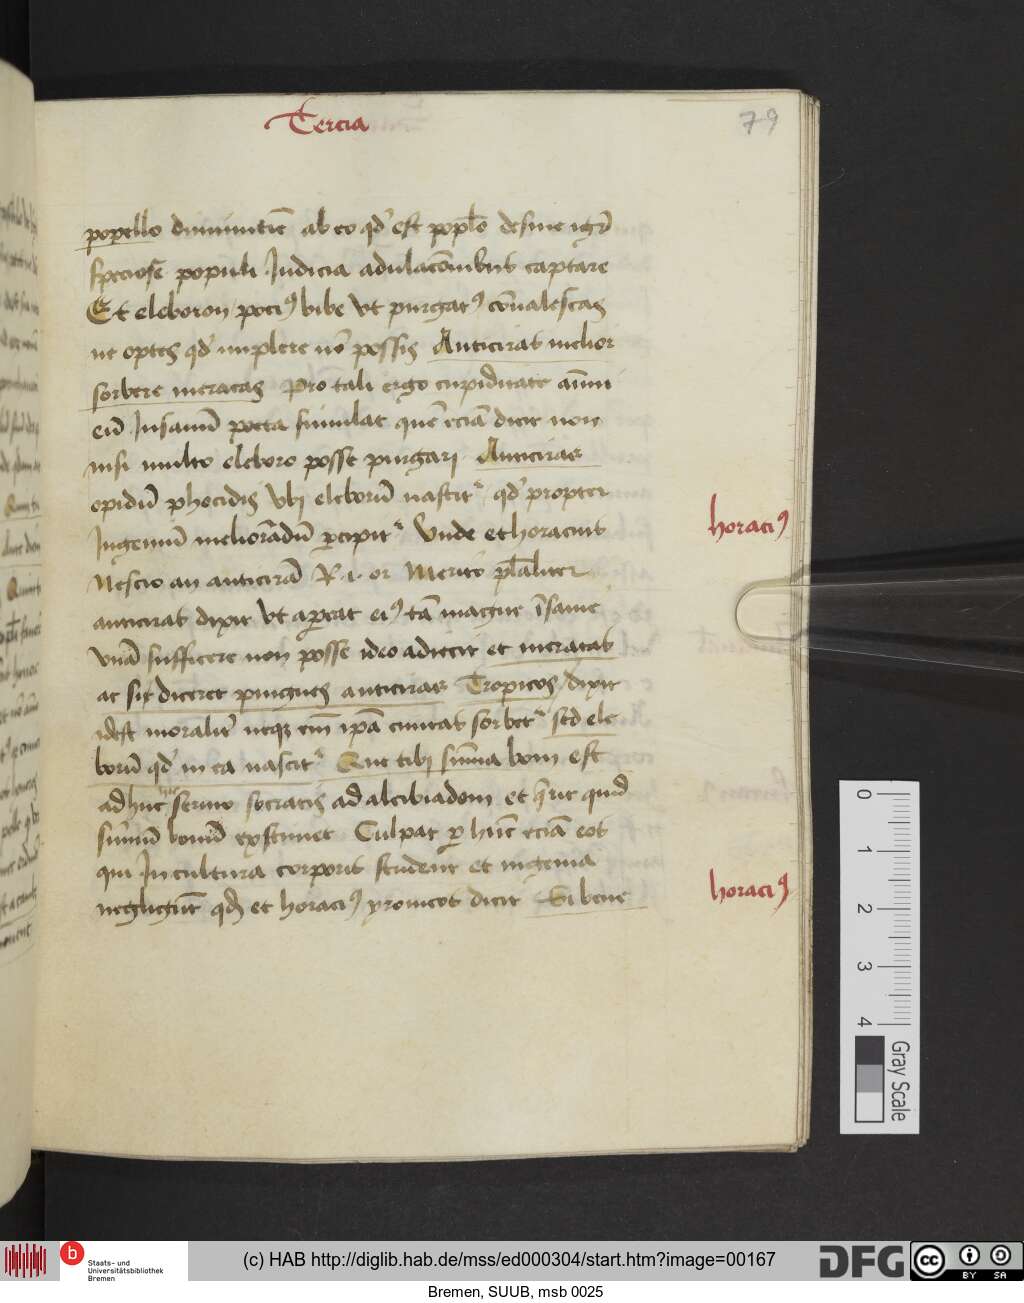 Tercia
79
popello diminutiē ab eo qd' est popl̄o desine igr̄
speciose populi Iudicia adulacōnibus captare
Et eleboron pociꝰ bibe Vt purgatꝰ cōualescas
ne optes qd' implere nō possis Anticiras melior
sorbere meracas Pro tali ergo cupiditate animi
eū Insanū poeta simulat quē eciā dicit non
nisi multo eleboro posse purgari Anticiras
opidū phocidis Vbi eleborū nascit' qd' propter
Ingeniū meliorādū percipit' Vnde et horacius
horaciꝰ
Nescio an anticirā R. i. or Merito pl̄aliter
anticiras dixit Vt apeat eiꝰ tā magne īsanie
Vnā sufficere non posse ideo adiecit et meratas
ac si diceret pingues anticiras Tropicos dixit
idest moralit' neqz em̄ ipā ciuitas sorbet' sed ele
borū qd' in ea nascit' Que tibi sūma boni est
hic
ad huc sermo socratis ad alcibiadem et q̄rit quid
sūmū bonū existimet Culpat p huc eciā eos
qui In cultura corporis student et ingenia
negligūt qd et horaciꝰ yronicos dicit Si bene
horaciꝰ
0
1
2
3
4
Gray Scale
b
Staats- und
Universitätsbibliothek
Bremen
(c) HAB http://diglib.hab.de/mss/ed000304/start.htm?image=00167
DFG
cc
BY SA
Bremen, SUUB, msb 0025